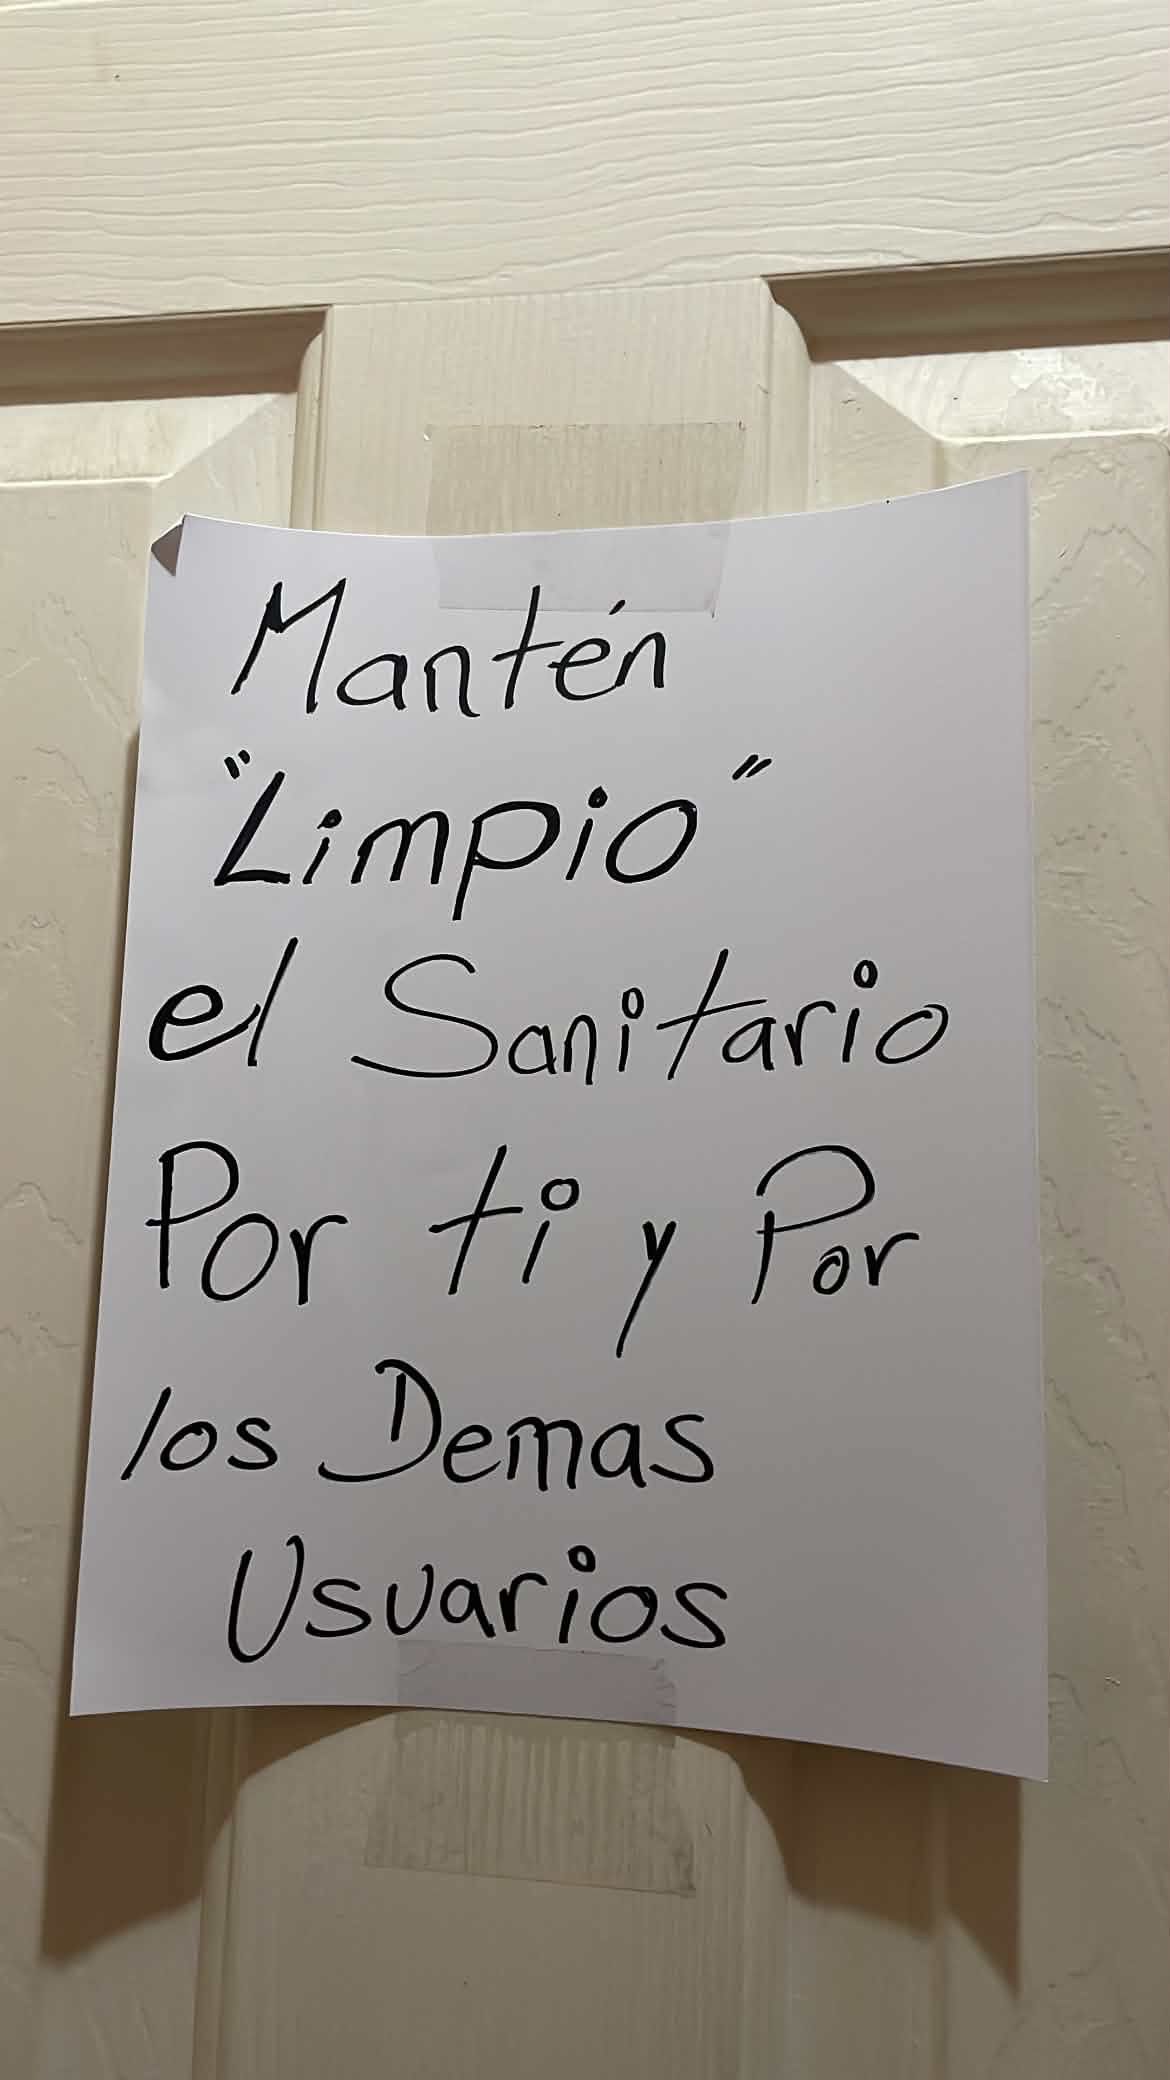 Mantén
"Limpio"
el Sanitario
Por ti y Por
los Demas
Usuarios